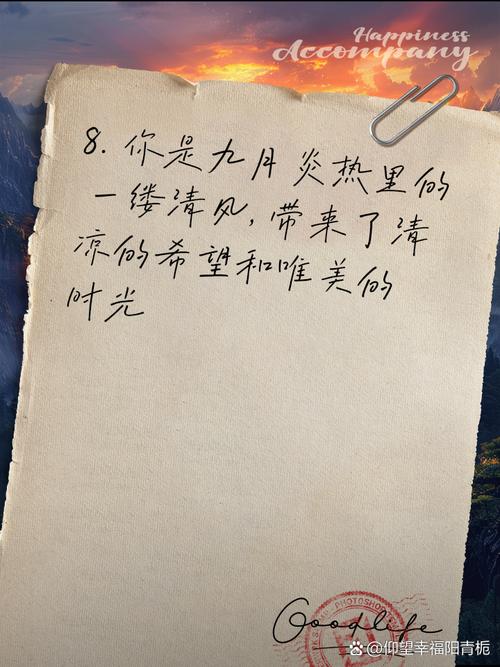 Happiness
Accompany
8. 你是九月炎热里的
一缕清风,带来了清
凉的希望和唯美的
时光
Goodlife
PHOTOSHOP
仰望幸福阳青栀